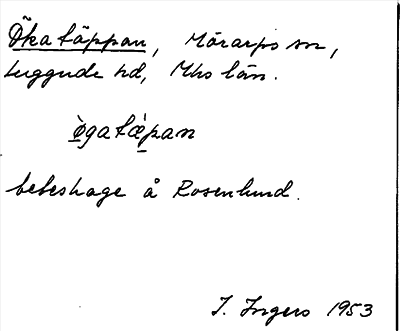 Öka täppan, Mörarps sn,
Luggude hd, Mhs län.
ø̀gatæ̱pan
beteshage å Rosenlund.
I. Ingers 1953